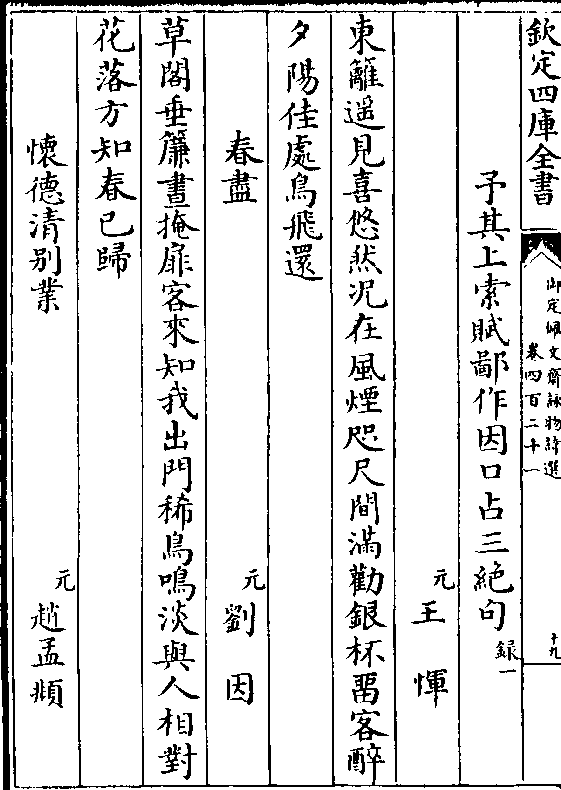 欽定四庫全書
御定佩文齋詠物詩選
卷四百二十一
十九
予其上索賦鄙作因口占三絶句錄一
元王惲
東籬遥見喜悠然况在風煙咫尺間滿勸銀杯畱客醉
夕陽佳處鳥飛還
春盡
元劉因
草閣垂簾晝掩扉客來知我出門稀鳥鳴淡與人相對
花落方知春已歸
懷德清别業
元趙孟頫